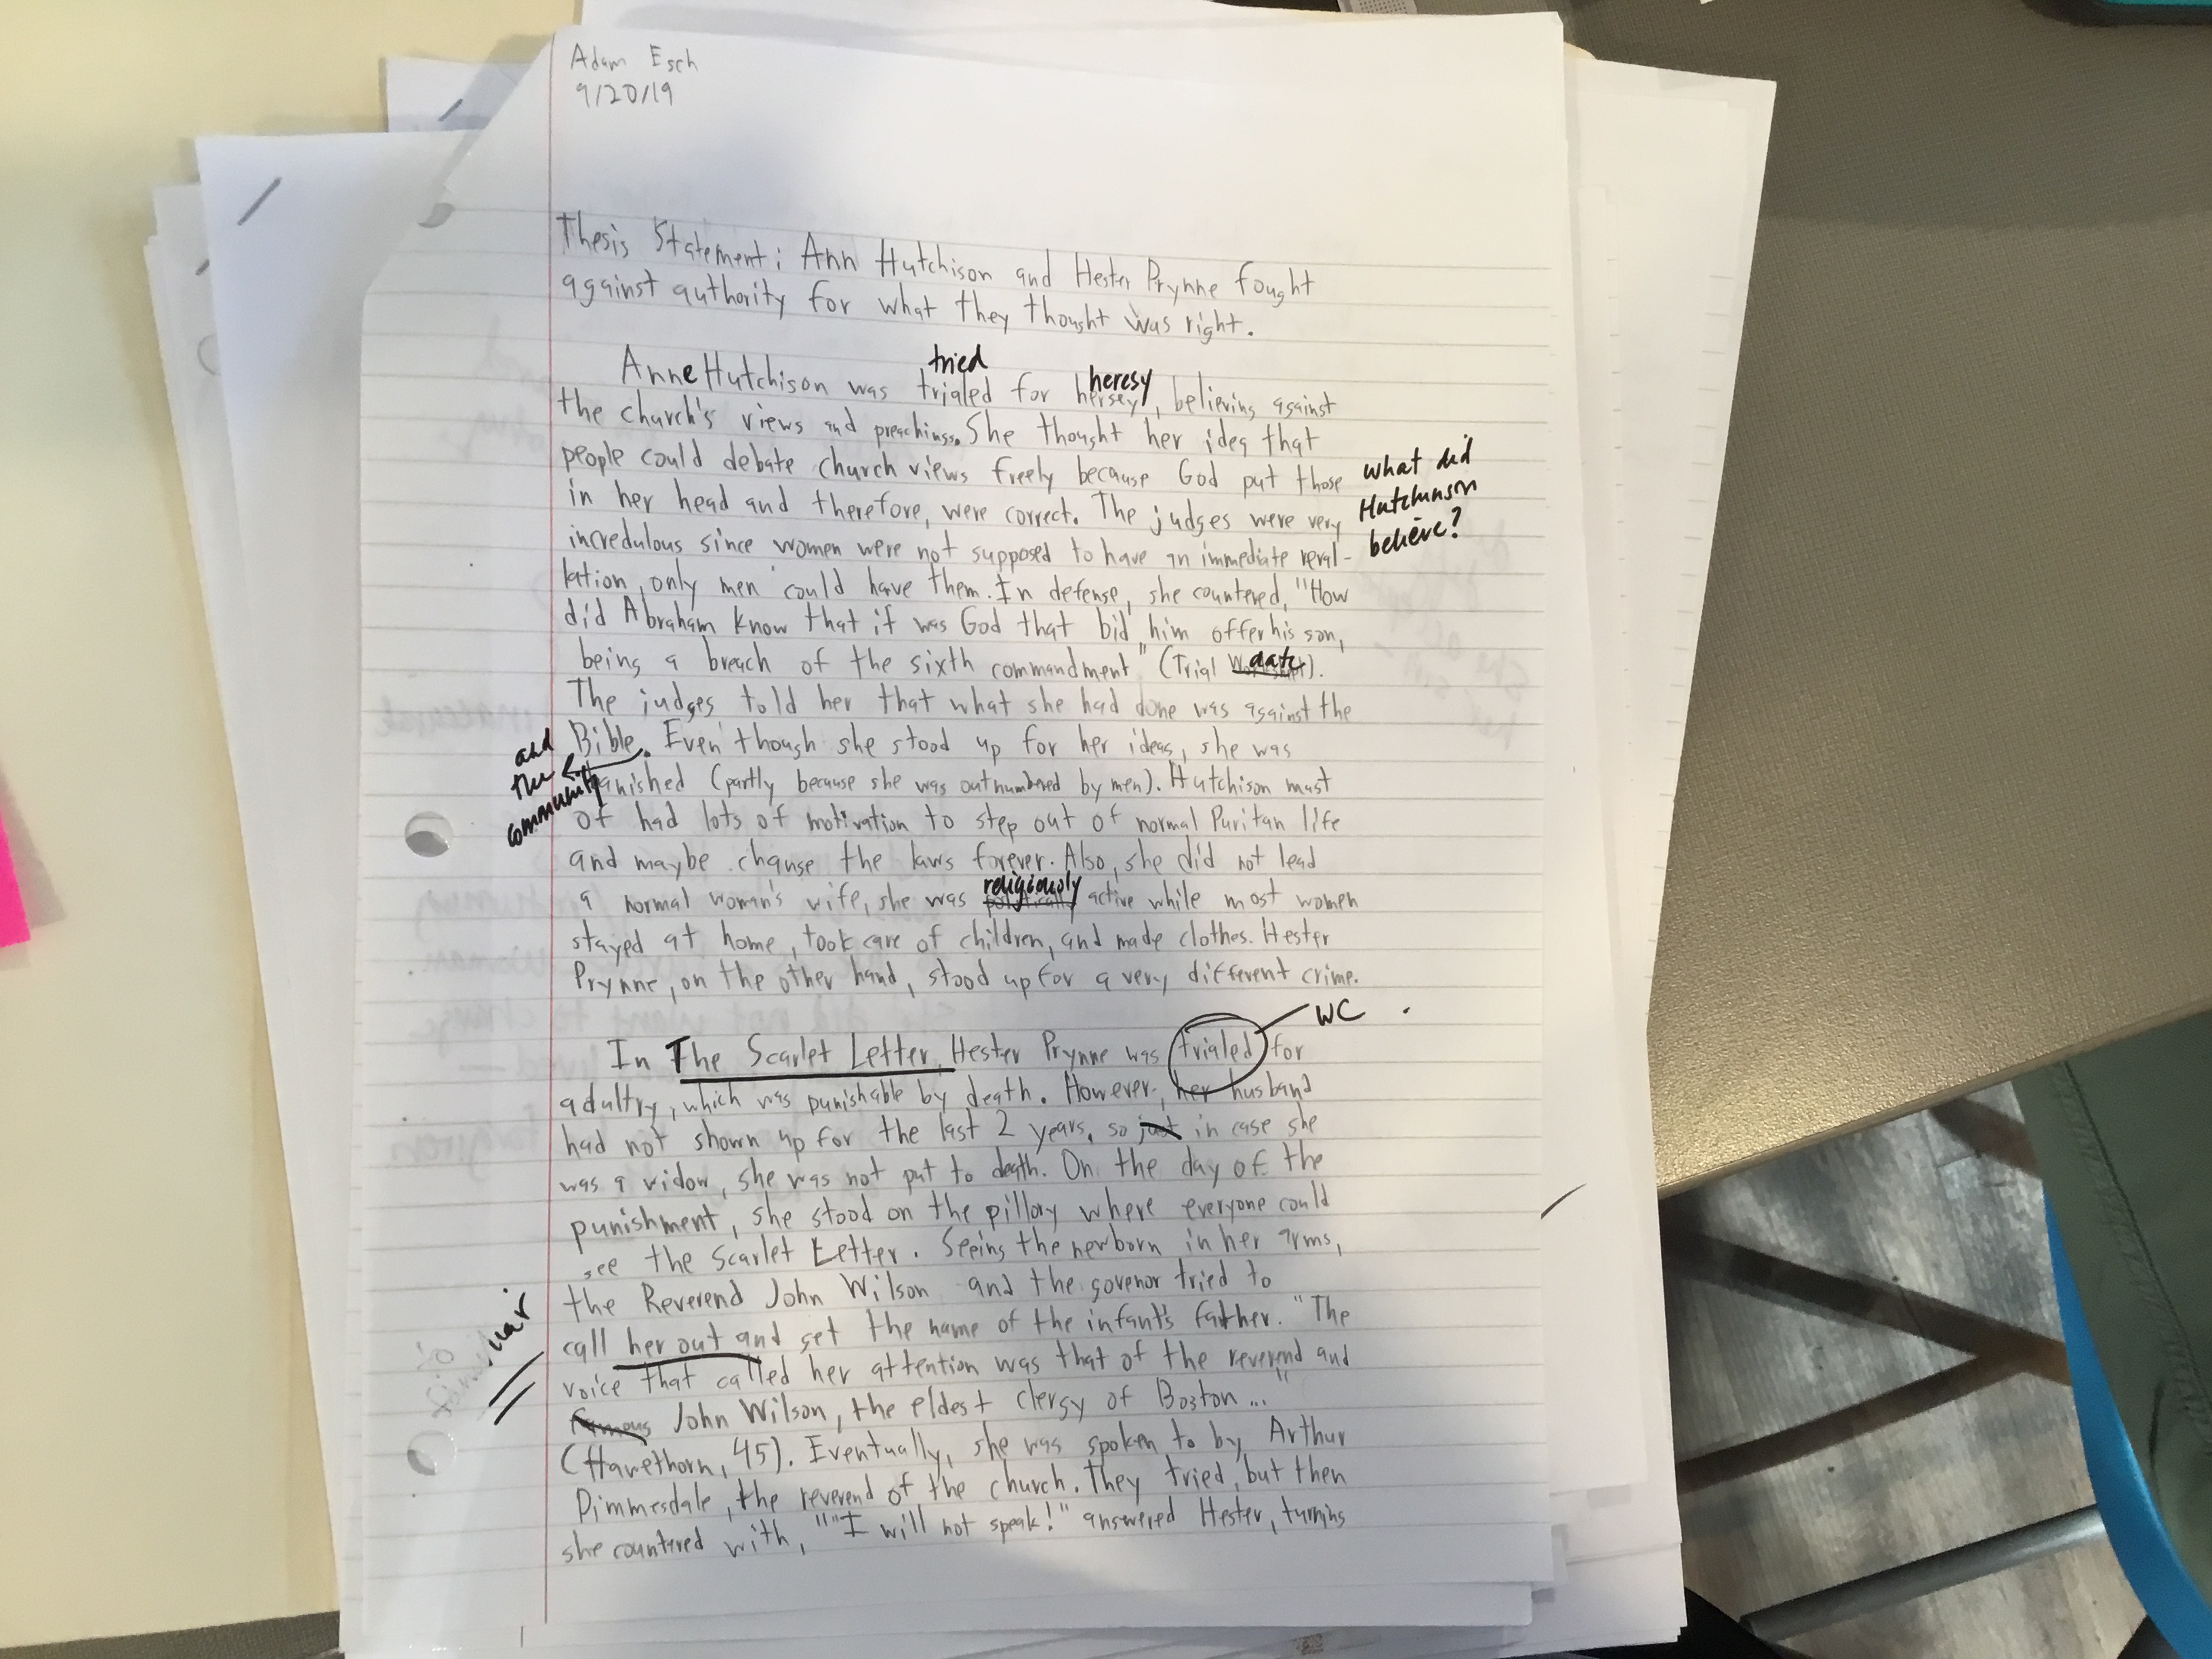 Adam Esch
9/20/19
Thesis Statement: Ann Hutchison and Hester Prynne fought
against authority for what they thought was right.
tried
Anne Hutchison was trialed for hersey, believing against
heresy
the church's views and preachings. She thought her idea that
people could debate church views freely because God put those
what did
Hutchinson
believe?
in her head and therefore, were correct. The judges were very
incredulous since women were not supposed to have an immediate reval-
lation, only men could have them. In defense, she countered, "How
did Abraham know that it was God that bid him offer his son,
being a breach of the sixth commandment" (Trial date).
The judges told her that what she had done was against the
Bible. Even though she stood up for her ideas, she was
and
the
community
banished (partly because she was outnumbered by men). Hutchison must
of had lots of motivation to step out of normal Puritan life
and maybe change the laws forever. Also, she did not lead
religiously
a normal woman's wife, she was politically active while most women
stayed at home, took care of children, and made clothes. Hester
Prynne, on the other hand, stood up for a very different crime.
WC
In The Scarlet Letter, Hester Prynne was trialed for
adultry, which was punishable by death. However, her husband
had not shown up for the last 2 years, so just in case she
was a widow, she was not put to death. On the day of the
punishment, she stood on the pillory where everyone could
see the Scarlet Letter. Seeing the newborn in her arms,
the Reverend John Wilson and the govenor tried to
call her out and get the name of the infant's father. "The
voice that called her attention was that of the reverend and
famous John Wilson, the eldest clergy of Boston..."
(Hawethorn, 45). Eventually, she was spoken to by Arthur
Dimmesdale, the reverend of the church. They tried, but then
she countered with, ""I will not speak!" answered Hester, turning